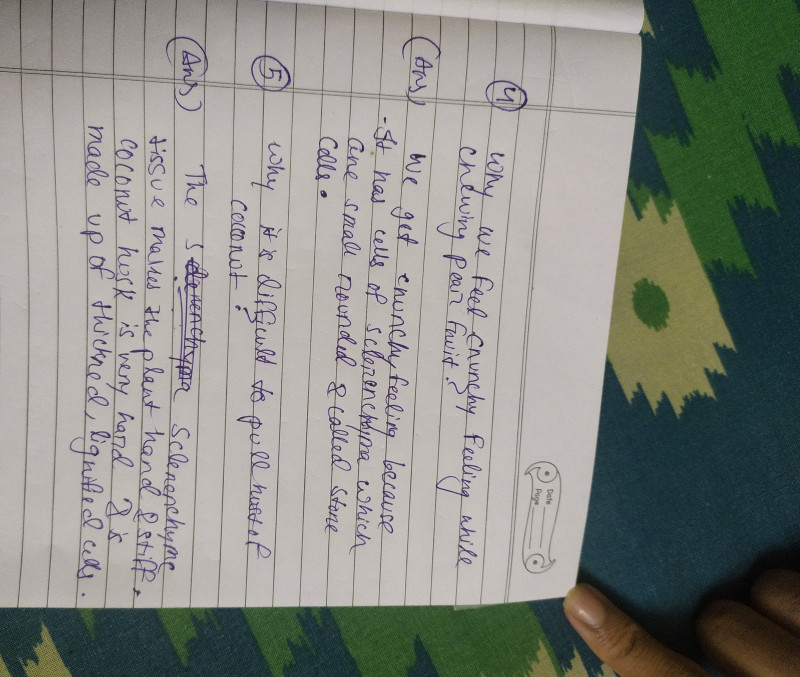 Date
Page
④ Why we feel crunchy feeling while
chewing pear fruit?
(Ans) We get crunchy feeling because
- It has cells of sclerenchyma which
are small rounded & called stone
cells.
⑤ Why it is difficult to pull husk of
coconut?
(Ans) The Sclerenchyma
tissue makes the plant hard & stiff.
coconut husk is very hard & is
made up of thickned, lignified cells.